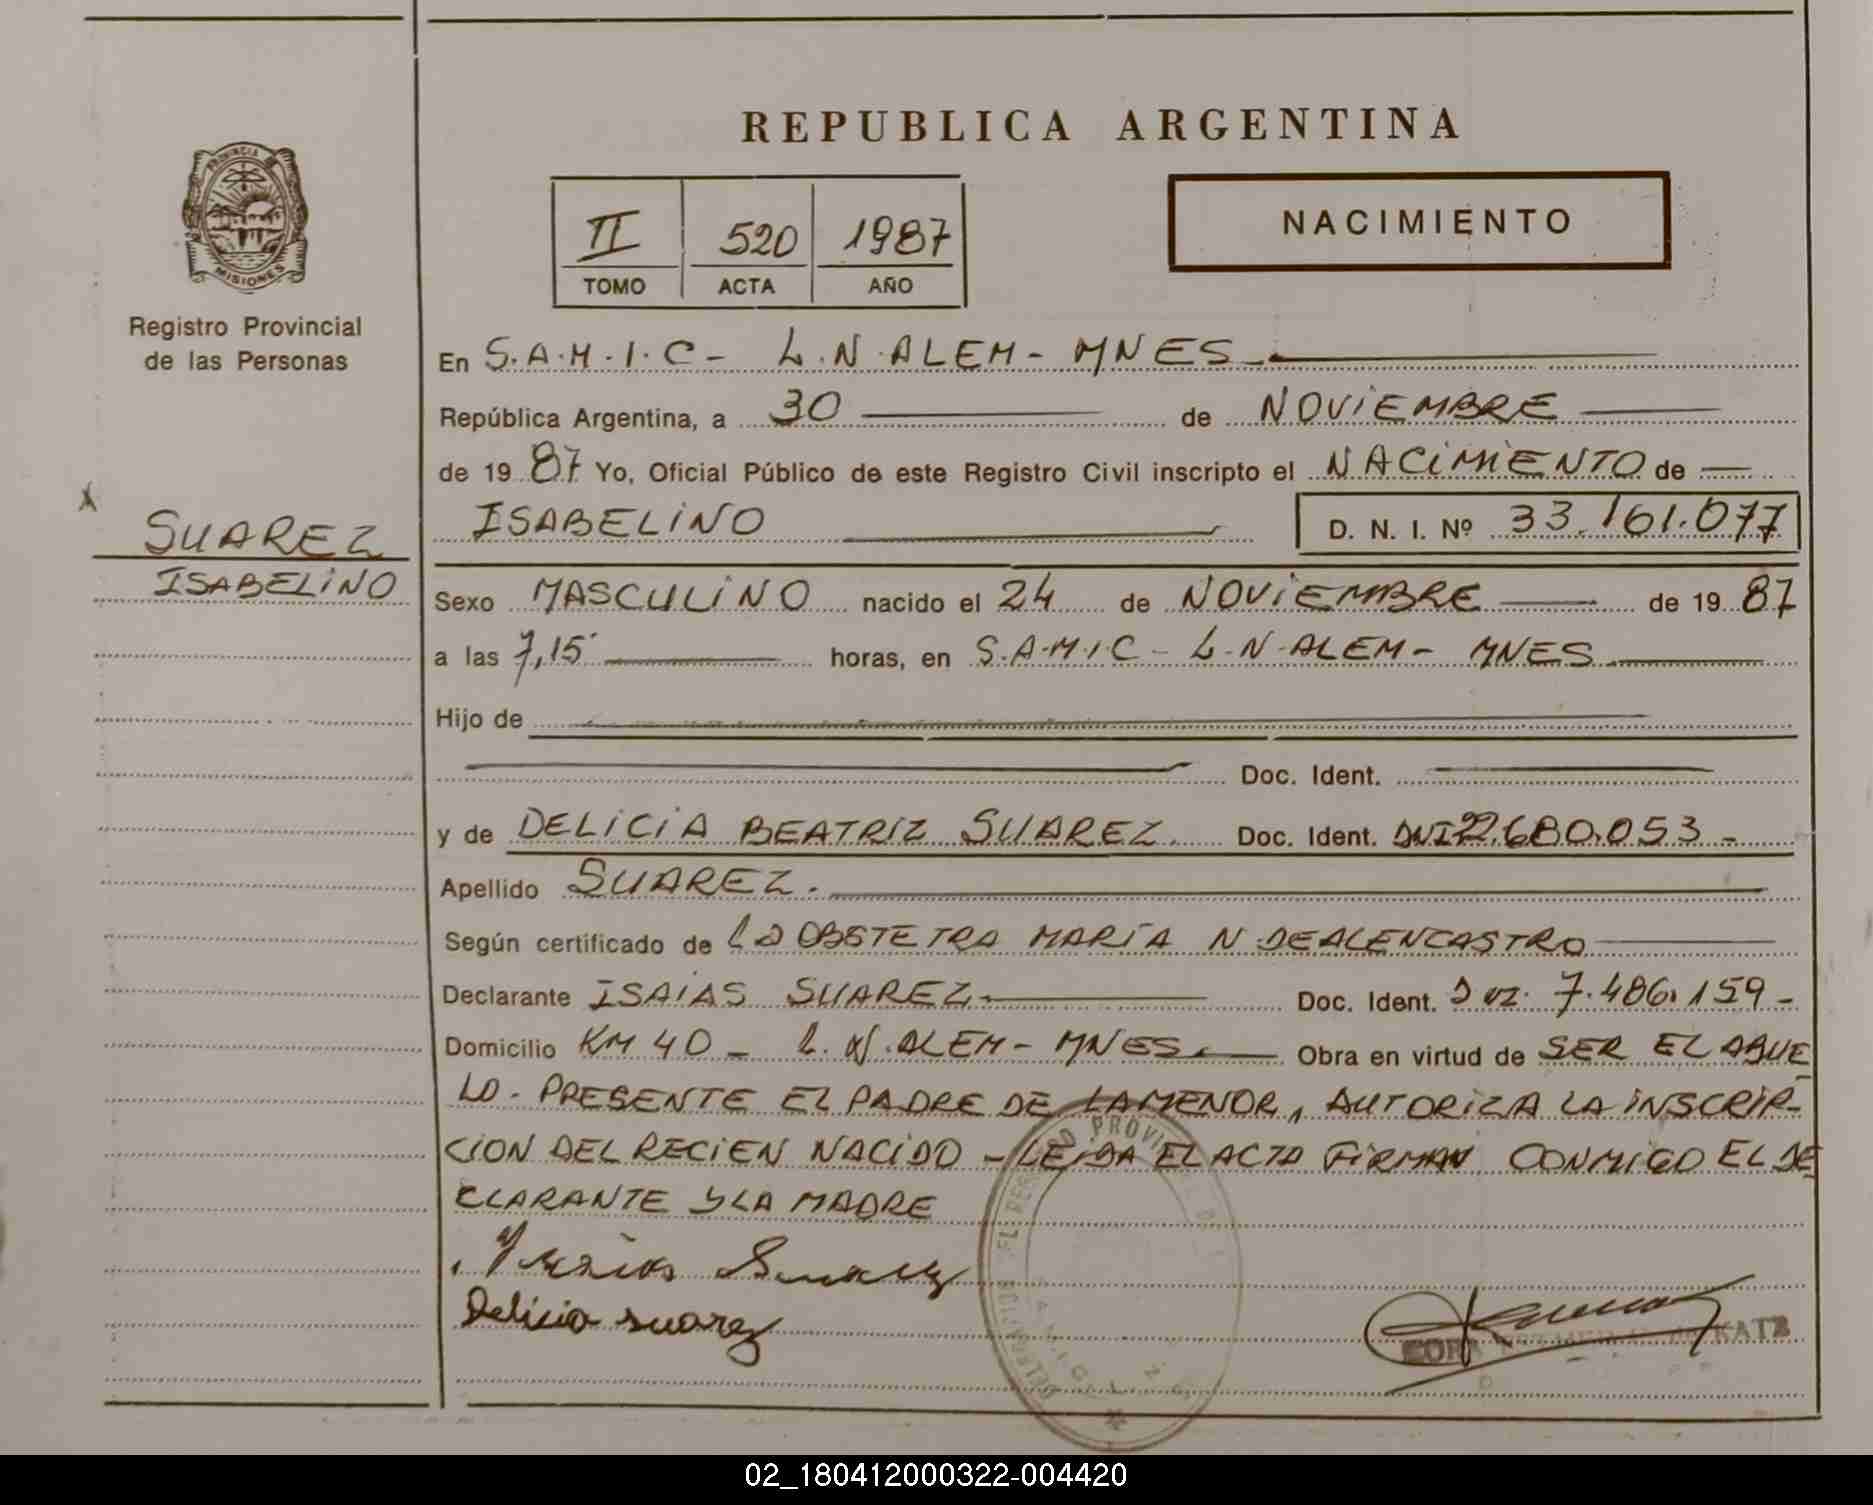 REPUBLICA ARGENTINA
PROVINCIA DE
MISIONES
Registro Provincial
de las Personas
II 520 1987
TOMO ACTA AÑO
NACIMIENTO
En S.A.M.I.C - L.N.ALEM - MNES
República Argentina, a 30 de NOViEMBRE
de 1987 Yo, Oficial Público de este Registro Civil inscripto el NACiMiENTO de
SUAREZ
ISABELiNO
ISABELiNO D. N. I. Nº 33.161.077
Sexo MASCULiNO nacido el 24 de NOViEMBRE de 1987
a las 7,15 horas, en S.A.M.I.C - L.N.ALEM - MNES
Hijo de
Doc. Ident.
y de DELiCiA BEATRIZ SUAREZ Doc. Ident. DNI22.680.053 -
Apellido SUAREZ.
Según certificado de La OBSTETRA MARÍA N DEALENCASTRO
Declarante ISAIAS SUAREZ Doc. Ident. 7.486.159 -
Domicilio KM 40 - L.N.ALEM - MNES. Obra en virtud de SER EL ABUE
LO. PRESENTE EL PADRE DE LA MENOR, AUTORiZA LA iNSCRIP-
CiON DEL RECiEN NACiDO - LEiDA EL ACTA FiRMAN CONMiGO EL DE
CLARANTE Y LA MADRE
Isaias Suarez
Delicia suarez
KATZ
02_180412000322-004420